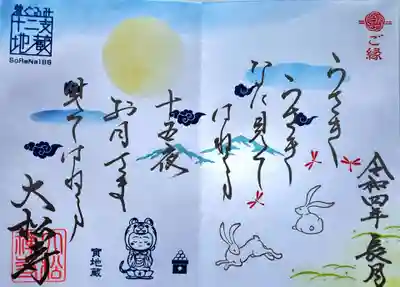 ご縁
令和四年 長月
うさぎ
うさぎ
なに見て
はねる
十五夜
お月さま
見てはねる
寅地蔵
十二支
地蔵
BoReNa186